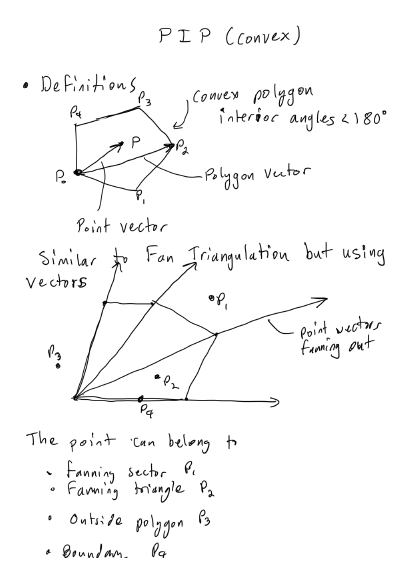 PIP (convex)
• Definitions
convex polygon
interior angles < 180°
P4
P3
P
P2
P0
P1
Polygon vector
Point vector
Similar to Fan Triangulation but using
vectors
P1
point vectors
fanning out
P3
P2
P4
The point can belong to
• Fanning sector P1
• Fanning triangle P2
• Outside polygon P3
• Boundary P4